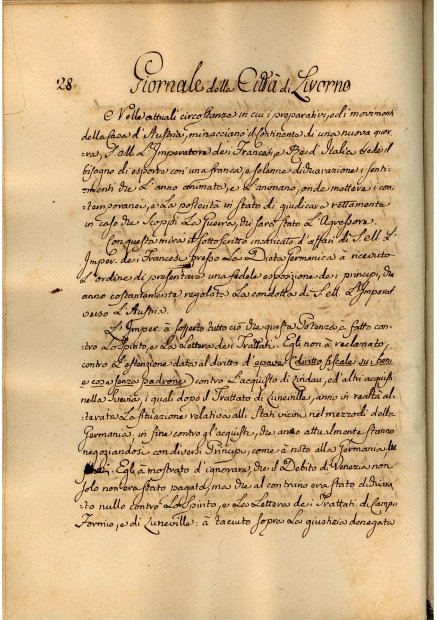 28. Giornale della Città di Livorno
Nelle attuali circostanze in cui i preparativi, ed i movimenti
della Casa d'Austria, minacciano il Continente di una nuova guer-
ra, S. M. L'Imperatore de i Francesi, e Re d'Italia crede il
bisogno di esporre con una franca, e solenne dichiarazione i senti-
menti che L'anno animata, e L'animano, onde mettere i con-
temporanei, e La posterità in stato di giudicare rettamente
in caso che Scoppi La Guerra, chi sarà stato L'Agressore.
Con questa mira il sottoscritto incaricato d'affari di S. M. L'
Imper. de i Francesi presso La Dieta Germanica à ricevuto
L'ordine di presentare una fedele esposizione de i principj, che
anno costantemente regolata La condotta di S. M. L'Imperat.
verso L'Austria.
L'Imper. à sofferto tutto ciò che questa Potenza à fatto con-
tro Lo Spirito, e La Lettera de i Trattati. Egli non à reclamato,
contro L'estenzione data al diritto d'epave (diritto fiscale su i beni
e cose senza padrone) contro L'acquisto di Lindau, ed altri acquisti
nella Svevia, i quali dopo il Trattato di Luneville, anno in realtà al-
terata La situazione relativa alli Stati vicini nel mezzodì della
Germania. in fine contro gl'acquisti, che anco attualmente stanno
negoziandosi con diversi Principi, come è noto alla Germania
Egli à mostrato d'ignorare, che il Debito di Venezia non
solo non era stato pagato, ma che al contrario era stato dichiara-
to nullo contro Lo Spirito, e La Lettera de i Trattati di Campo
Formio, e di Luneville: à taciuto sopra La giustizia denegata